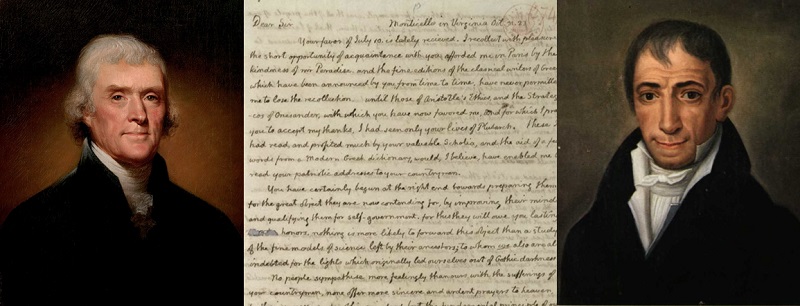 Dear Sir Monticello in Virginia Oct. 31. 23
Your favor of July 10. is lately recieved. I recollect with pleasure
the short opportunity of acquaintance with you afforded me in Paris by the
kindness of mr Paradise, and the fine editions of the classical writers of Greece
which have been announced by you from time to time, have never permitted
me to lose the recollection. until those of Aristotle's Ethics, and the Strate
-cos of Onesander, with which you have now favored me, and for which I pray
you to accept my thanks, I had seen only your lives of Plutarch. These
had read, and profited much by your valuable Scholia, and the aid of a few
words from a Modern Greek dictionary would, I believe, have enabled me to
read your patriotic addresses to your countrymen.
You have certainly begun at the right end towards preparing them
for the great object they are now contending for, by improving their minds
and qualifying them for self-government. for this they will owe you lasting
honors. nothing is more likely to forward this object than a study
of the fine models of science left by their ancestors; to whom we also are all
indebted for the lights which originally led ourselves out of Gothic darkness.
No people sympathise more feelingly than ours with the sufferings of
your countrymen, none offer more sincere and ardent prayers to heaven